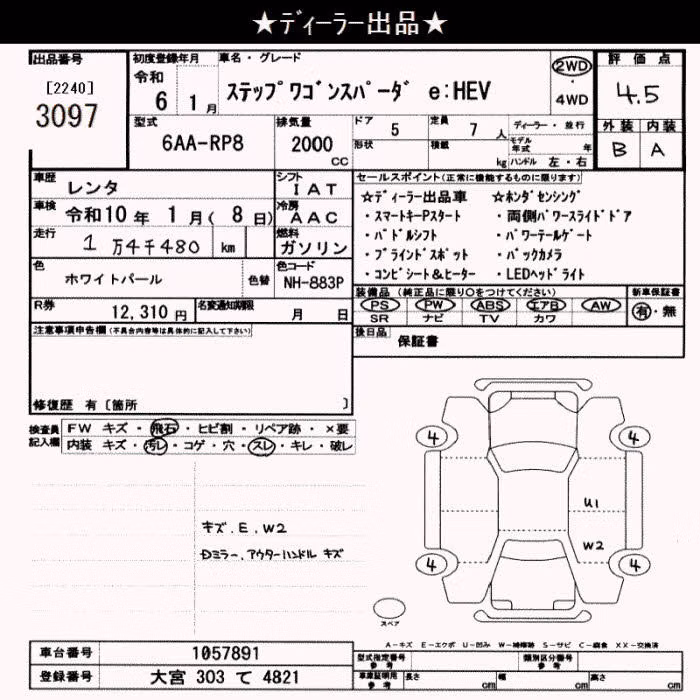 ★ディーラー出品★
出品番号
[2240]
3097
初度登録年月
令和
6 1月
車名・グレード
ステップワゴンスパーダ e:HEV
2WD
4WD
評価点
4.5
外装 内装
B A
型式
6AA-RP8
排気量
2000
cc
ドア 5
定員 7人
形状
積載 kg
ディーラー・並行
モデル年式 年
ハンドル 左・右
車歴
レンタ
シフト
IAT
車検
令和10年 1月(8日)
冷房
AAC
走行
1万4千480 km
燃料
ガソリン
色
ホワイトパール
色替
色コード
NH-883P
セールスポイント(正常に機能するものに限ります)
☆ディーラー出品車 ☆ホンダセンシング
・スマートキーPスタート ・両側パワースライドドア
・パドルシフト ・パワーテールゲート
・ブラインドスポット ・バックカメラ
・コンビシート&ヒーター ・LEDヘッドライト
R券
12,310円
名変通知期限
月 日
装備品(純正品に限り○をつけてください)
PS PW ABS エアB AW
SR ナビ TV カワ
新車保証書
有・無
注意事項申告欄(不具合内容等は具体的に記入して下さい)
後日品
保証書
修復歴 有〔箇所 〕
検査員記入欄
FW キズ・飛石・ヒビ割・リペア跡・×要
内装 キズ・汚レ・コゲ・穴・スレ・キレ・破レ
キズ.E.W2
Dミラー.アウターハンドル キズ
4 4
U1
W2
4 4
スペア
A-キズ E-エクボ U-凹み W-補修跡 S-サビ C-腐食 XX-交換済
車台番号
1057891
登録番号
大宮 303 て 4821
型式指定番号
参考
類別区分番号
参考
車庫証明用
参考
長さ cm
幅 cm
高さ cm